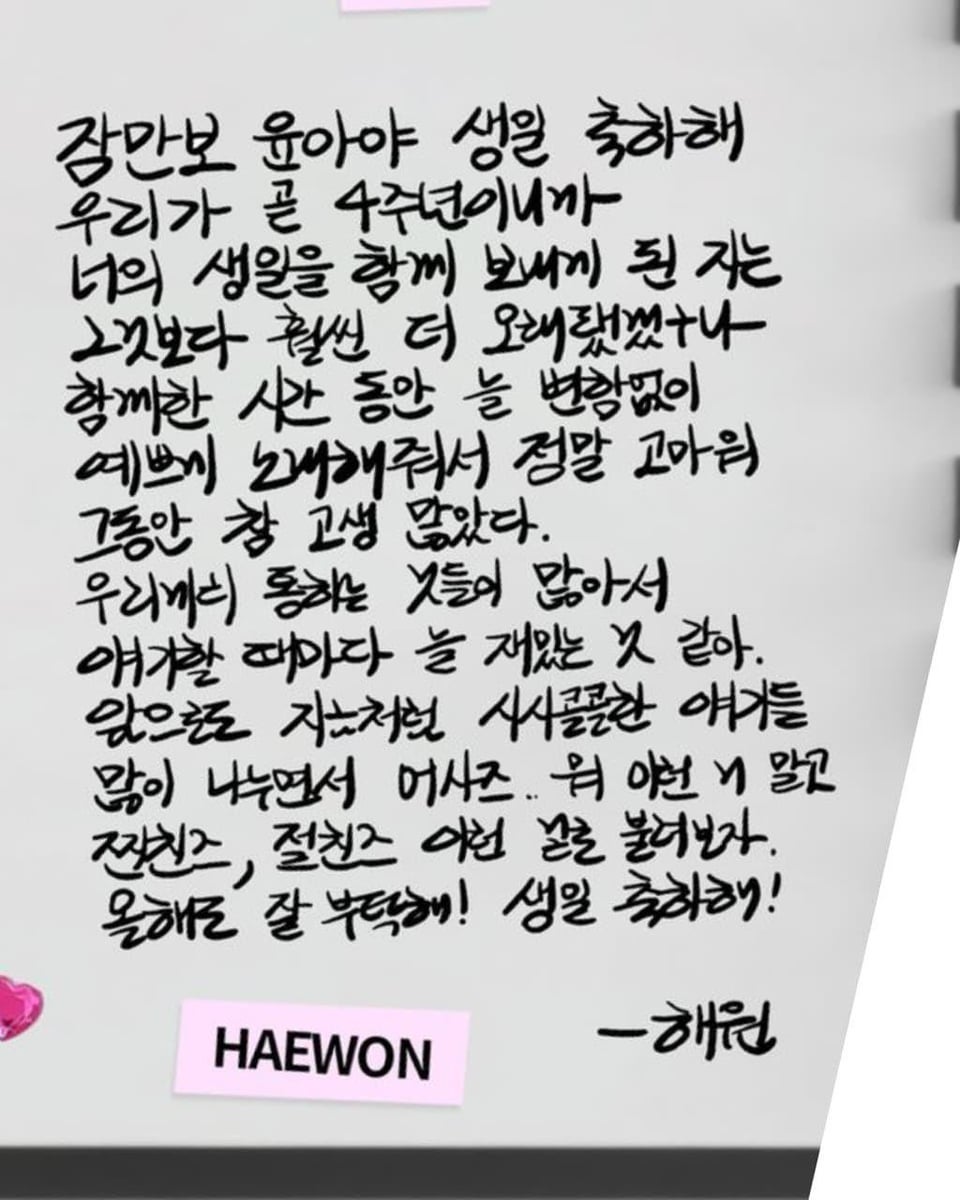 잠만보 윤아야 생일 축하해
우리가 곧 4주년이니까
너의 생일을 함께 보내게 된 지는
그것보다 훨씬 더 오래됐겠구나
함께한 시간 동안 늘 변함없이
예쁘게 노래해줘서 정말 고마워
그동안 참 고생 많았다.
우리끼리 통하는 것들이 많아서
얘기할 때마다 늘 재밌는 것 같아.
앞으로도 지금처럼 시시콜콜한 얘기들
많이 나누면서 어사즈.. 뭐 이런 거 말고
짠친즈, 절친즈 이런 걸로 불려보자.
올해도 잘 부탁해! 생일 축하해!
HAEWON
-해원